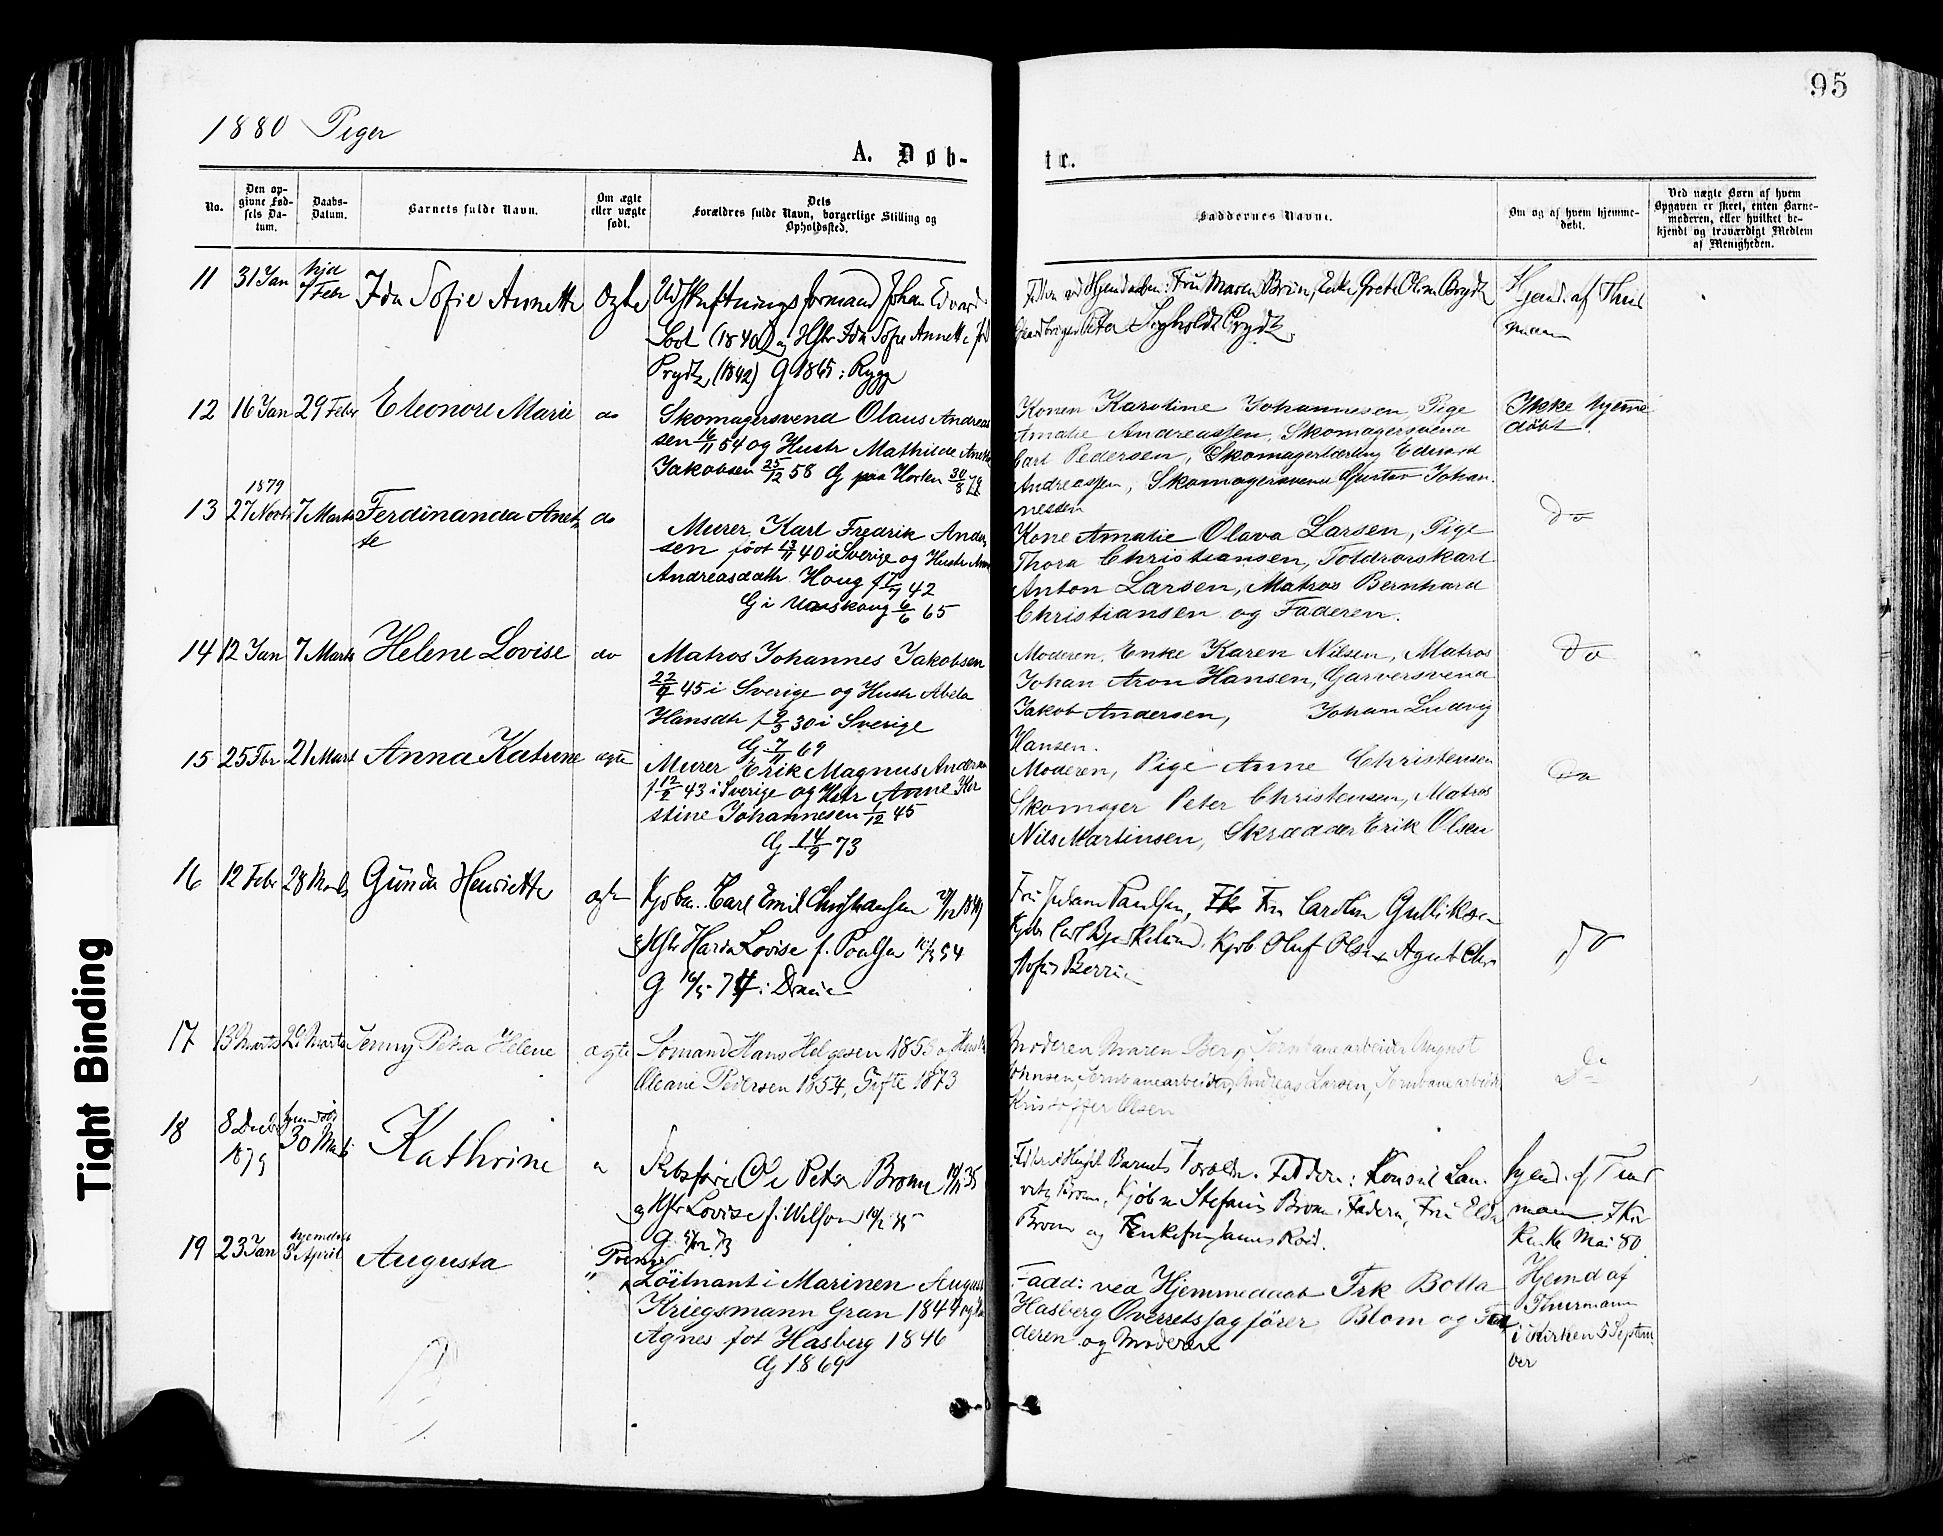 95
1880 Piger
A. Døb-
te.
No.
Den op-
givne Fød-
sels Da-
tum.
Daabs-
Datum.
Barnets fulde Navn.
Om ægte
eller uægte
født.
Dets
Forældres fulde Navn, borgerlige Stilling og
Opholdssted.
Faddernes Navne.
Om og af hvem hjemme-
døbt.
Ved uægte Børn af hvem
Opgaven er skeet, enten Barne-
moderen, eller hvilket be-
kjendt og troværdigt Medlem
af Menigheden.
11 31 Jan Febr Ida Sofie Annette Ægte
Udskiftningsformand Johan Edvard
(1840) og Hstr Ida Sofie Annette
Prydz (1842) G 1865 i Rygge
Fru Maren Brun, Enke Grethe Oline Prydz
Prydz
Hjemd. af Thur
mann
12 16 Jan 29 Febr Eleonore Marie do
Skomagersvend Olaus Andreas
sen 16/11 54 og Hustr Mathilde Anette
Jakobsen 25/12 58 G paa Horten 30/8 79
Konen Karoline Johannesen, Pige
Amalie Andreassen, Skomagersvend
Carl Pedersen, Skomagerlærling Edvard
Andreassen, Skomagersvend Gustav Johan
nessen
Ikke hjemme
døbt
1879
13 27 Novb 7 Marts Ferdinanda Anet
te do
Murer Karl Fredrik Ander
sen født 13/11 40 i Sverige og Hustr Anne
Andreasdatr Houg f 7/7 42
G i Urskoug 6/6 65
Kone Amalie Olava Larsen, Pige
Thora Christiansen, Toldrorskarl
Anton Larsen, Matros Bernhard
Christiansen og Faderen.
do
14 12 Jan 7 Marts Helene Lovise do
Matros Johannes Jakobsen
22/9 45 i Sverige og Hustr Abela
Hansdtr f 9/3 30 i Sverige
G 7/11 69
Moderen, Enke Karen Nilsen, Matros
Johan Aron Hansen, Garversvend
Jakob Andersen, Johan Ludvig
Hansen.
do
15 25 Fbr 21 Mart Anna Katrine ægte
Murer Erik Magnus Andersen
f 12/2 43 i Sverige og Hstr Anne Ker
stine Johannesen 1/12 45
G 14/9 73
Moderen, Pige Anne Christensen
Skomager Peter Christensen, Matros
Nils Martinsen, Skrædder Erik Olsen
do
16 12 Febr 28 Marts Gunda Henriette ægte
Kjøbm. Carl Emil Christiansen
Hstr Maria Lovise f. Poulsen 54
G 16/5 74 i
Paulsen, Fru Carolin Gulliksen
Kjøb. Oluf Olsen Agent Chr
do
17 13 Marts 29 Marts Jenny Petra Helene ægte
Sømand Hans Helgesen 1853 og Hustr
Oleane Pedersen 1854, Gifte 1873
Moderen Maren Berg, Jernbanearbeider August
Johnsen, Jernbanearbeider Andreas Larsen, Jernbanearbeider
Kristoffer Olsen
do
18 8 Decbr
1879 hjemdøbt
30 Marts Kathrine
Skibsfører Ole Peter Bronn 35
og Hstr Lovise f. Wilson
G 73
Barnets Forældre. Faddere: Konsul Lau
ritz Bronn, Kjøbm Stefanus Bronn, Faderen, Fru Elda
Bronn og Enkefru
hjemd. af Thur
mann. I Kir
ken Mai 80
19 23 Jan hjemdøbt
3 April Augusta "
Premier
Löitnant i Marinen August
Kriegsmann Gran 1844 og Hu
Agnes føt Hasberg 1846
G 1869
Fadd: ved Hjemmedaab Frk Botta
Hasberg Overretssagfører Blom og Fa
deren og Moderen
Hjemd af
Thurmann
i Kirken 5 Septem
ber
Tight Binding